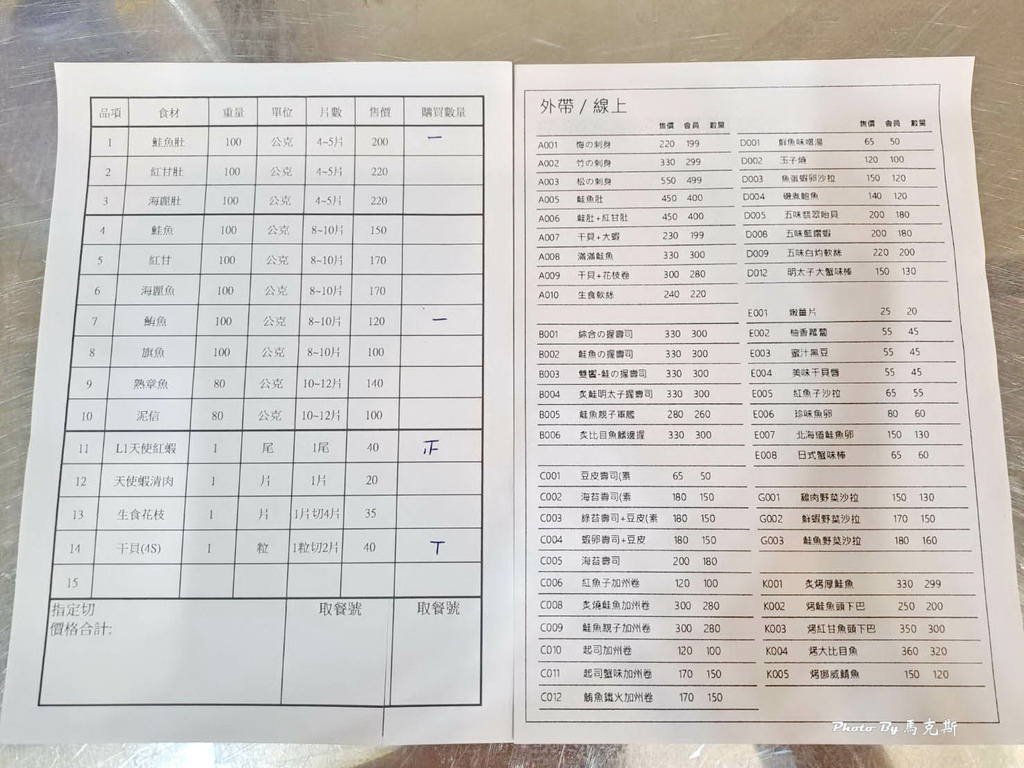 品項 食材 重量 單位 片數 售價 購買數量
1 鮭魚肚 100 公克 4~5片 200 一
2 紅甘肚 100 公克 4~5片 220
3 海麗肚 100 公克 4~5片 220
4 鮭魚 100 公克 8~10片 150
5 紅甘 100 公克 8~10片 170
6 海麗魚 100 公克 8~10片 170
7 鮪魚 100 公克 8~10片 120 一
8 旗魚 100 公克 8~10片 100
9 熟章魚 80 公克 10~12片 140
10 泥信 80 公克 10~12片 100
11 L1天使紅蝦 1 尾 1尾 40 正
12 天使蝦清肉 1 片 1片 20
13 生食花枝 1 片 1片切4片 35
14 干貝(4S) 1 粒 1粒切2片 40 丅
15
指定切
價格合計:
取餐號 取餐號
外帶 / 線上
售價 會員 數量
A001 梅の刺身 220 199
A002 竹の刺身 330 299
A003 松の刺身 550 499
A005 鮭魚肚 450 400
A006 鮭肚+紅甘肚 450 400
A007 干貝+大蝦 230 199
A008 滿滿鮭魚 330 300
A009 干貝+花枝卷 300 280
A010 生食軟絲 240 220
B001 綜合の握壽司 330 300
B002 鮭魚の握壽司 330 300
B003 雙響-鮭の握壽司 330 300
B004 炙鮭明太子握壽司 330 300
B005 鮭魚親子軍艦 280 260
B006 炙比目魚鰭邊握 330 300
C001 豆皮壽司(素 65 50
C002 海苔壽司(素 180 150
C003 綠苔壽司+豆皮(素 180 150
C004 蝦卵壽司+豆皮 180 150
C005 海苔壽司 200 180
C006 紅魚子加州卷 120 100
C008 炙燒鮭魚加州卷 300 280
C009 鮭魚親子加州卷 300 280
C010 起司加州卷 120 100
C011 起司蟹味加州卷 170 150
C012 鮪魚鐵火加州卷 170 150
售價 會員 數量
D001 鮮魚味噌湯 65 50
D002 玉子燒 120 100
D003 魚蛋蝦卵沙拉 150 120
D004 磯煮鮑魚 140 120
D005 五味翡翠貽貝 200 180
D008 五味藍鑽蝦 200 180
D009 五味白灼軟絲 220 200
D012 明太子大蟹味棒 150 130
E001 嫩薑片 25 20
E002 柚香蘿蔔 55 45
E003 蜜汁黑豆 55 45
E004 美味干貝唇 55 45
E005 紅魚子沙拉 65 55
E006 珍味魚卵 80 60
E007 北海道鮭魚卵 150 130
E008 日式蟹味棒 65 60
G001 雞肉野菜沙拉 150 130
G002 鮮蝦野菜沙拉 170 150
G003 鮭魚野菜沙拉 180 160
K001 炙烤厚鮭魚 330 299
K002 烤鮭魚頭下巴 250 200
K003 烤紅甘魚頭下巴 350 300
K004 烤大比目魚 360 320
K005 烤挪威鯖魚 150 120
Photo By 馬克斯